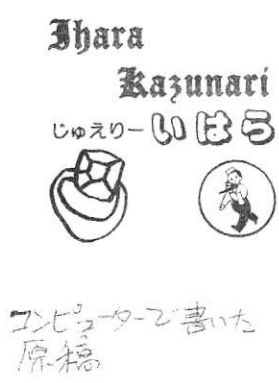 Ihara
Kazunari
じゅえりーいはら
コンピューターで書いた
原稿